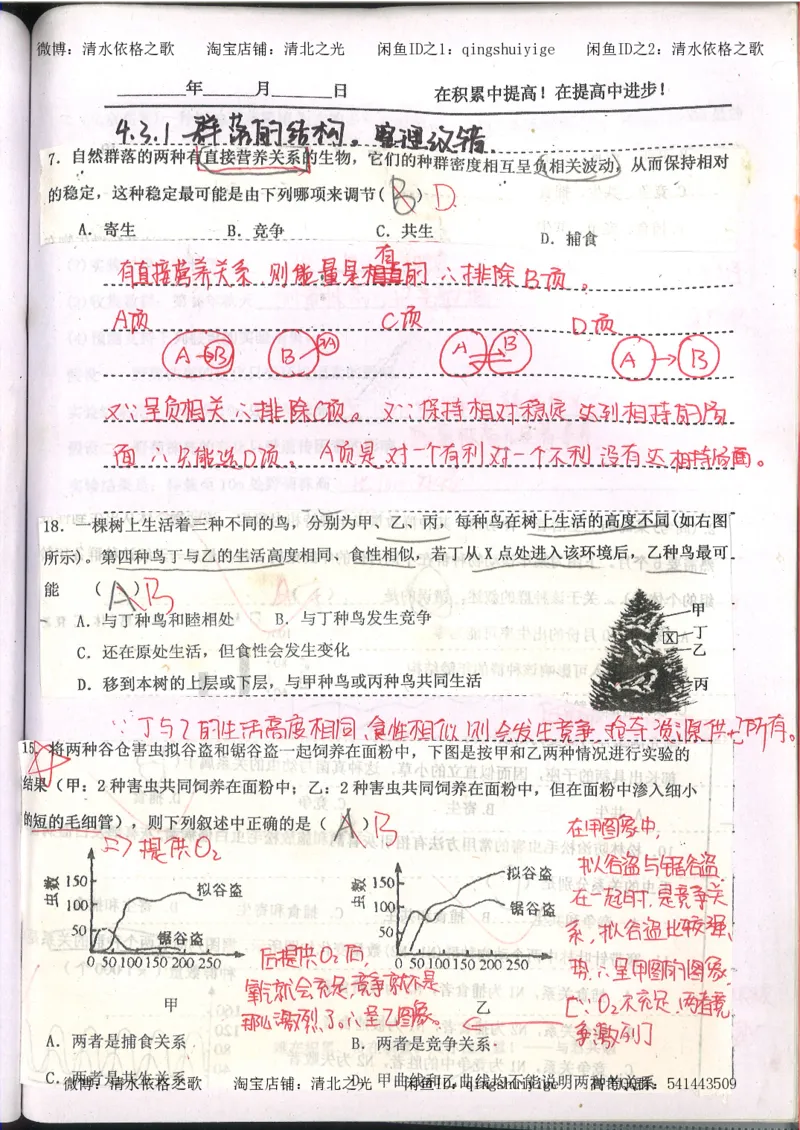 微博：清水依格之歌 淘宝店铺：清北之光 闲鱼ID之1：qingshuiyige 闲鱼ID之2：清水依格之歌
年 月 日 在积累中提高！在提高中进步！
4.3.1 群落的结构。整理纹错.
7．自然群落的两种有直接营养关系的生物，它们的种群密度相互呈负相关波动，从而保持相对
的稳定，这种稳定最可能是由下列哪项来调节(B) D
A．寄生 B．竞争 C．共生 D．捕食
有直接营养关系,则能量是有相直的 ∴排除B项。
A项 C项 D项
A B B A A B A B
又∵呈负相关∴排除C项。又∵保持相对稳定达到相持的局
面∴只能选D项。A项是对一个有利对一个不利没有达相持局面。
18．一棵树上生活着三种不同的鸟，分别为甲、乙、丙，每种鸟在树上生活的高度不同(如右图
所示)。第四种鸟丁与乙的生活高度相同、食性相似，若丁从 X 点处进入该环境后，乙种鸟最可
能 （A）B
A．与丁种鸟和睦相处 B．与丁种鸟发生竞争
C．还在原处生活，但食性会发生变化
D．移到本树的上层或下层，与甲种鸟或丙种鸟共同生活
甲
X 丁
乙
丙
∵丁与乙的生活高度相同,食性相似,则会发生竞争,抢夺资源供己所有。
15．将两种谷仓害虫拟谷盗和锯谷盗一起饲养在面粉中，下图是按甲和乙两种情况进行实验的
结果（甲：2 种害虫共同饲养在面粉中；乙：2 种害虫共同饲养在面粉中，但在面粉中渗入细小
的短的毛细管），则下列叙述中正确的是（A）B
提供O₂
虫数 150 100 50 0 50 100 150 200 250
拟谷盗
锯谷盗
甲
虫数 150 100 50 0 50 100 150 200 250
拟谷盗
锯谷盗
乙
在甲图象中,
拟谷盗与锯谷盗
在一起时,是竞争关
系,拟谷盗比较强
势,∴呈甲图的图象
(∵O₂不充足,两者竞
争激烈)
后提供O₂后,
氧气就会充足,竞争就不是
那么激烈了。∴呈乙图象。
A．两者是捕食关系 B．两者是竞争关系
C．两者是共生关系 D．甲曲线和乙曲线均不能说明两种的关系
微博：清水依格之歌 淘宝店铺：清北之光 闲鱼ID：qingshuiyige 高考QQ群：541443509